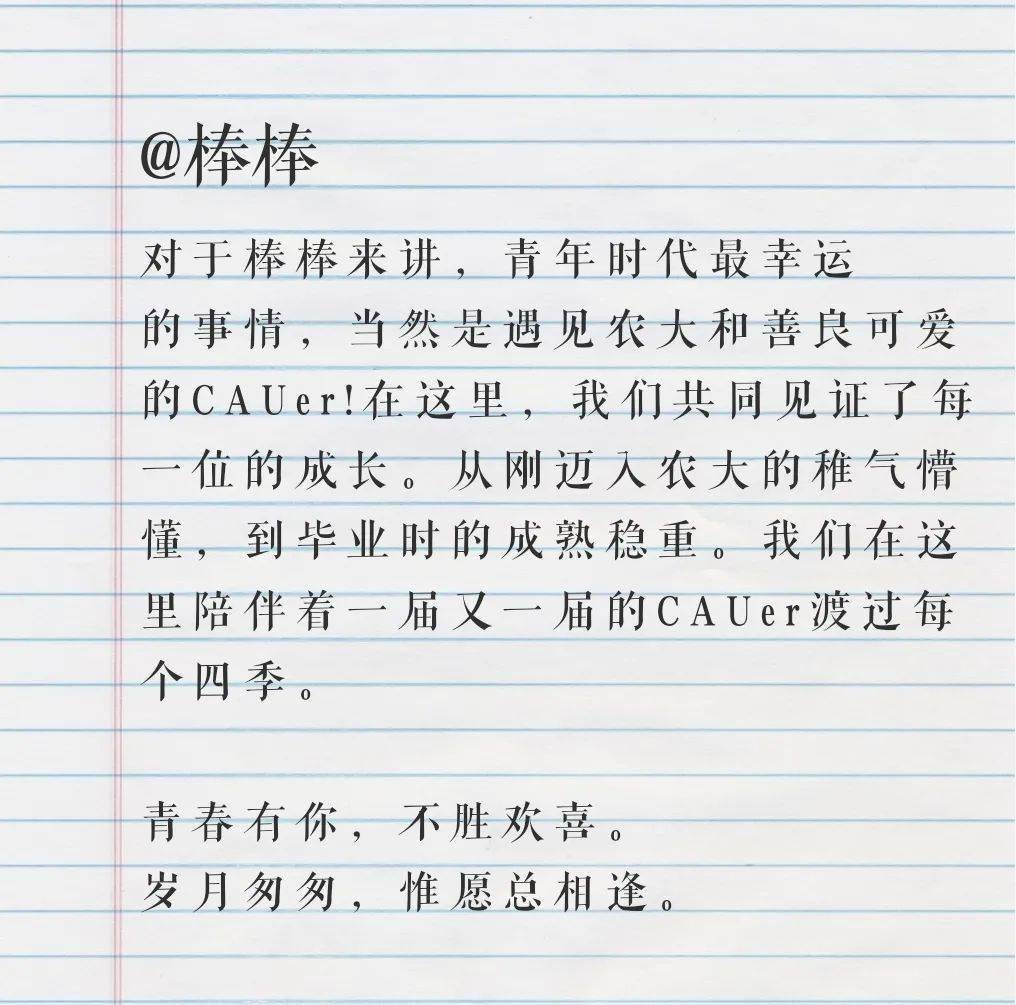 @棒棒
对于棒棒来讲，青年时代最幸运
的事情，当然是遇见农大和善良可爱
的CAUer!在这里，我们共同见证了每
一位的成长。从刚迈入农大的稚气懵
懂，到毕业时的成熟稳重。我们在这
里陪伴着一届又一届的CAUer渡过每
个四季。
青春有你，不胜欢喜。
岁月匆匆，惟愿总相逢。